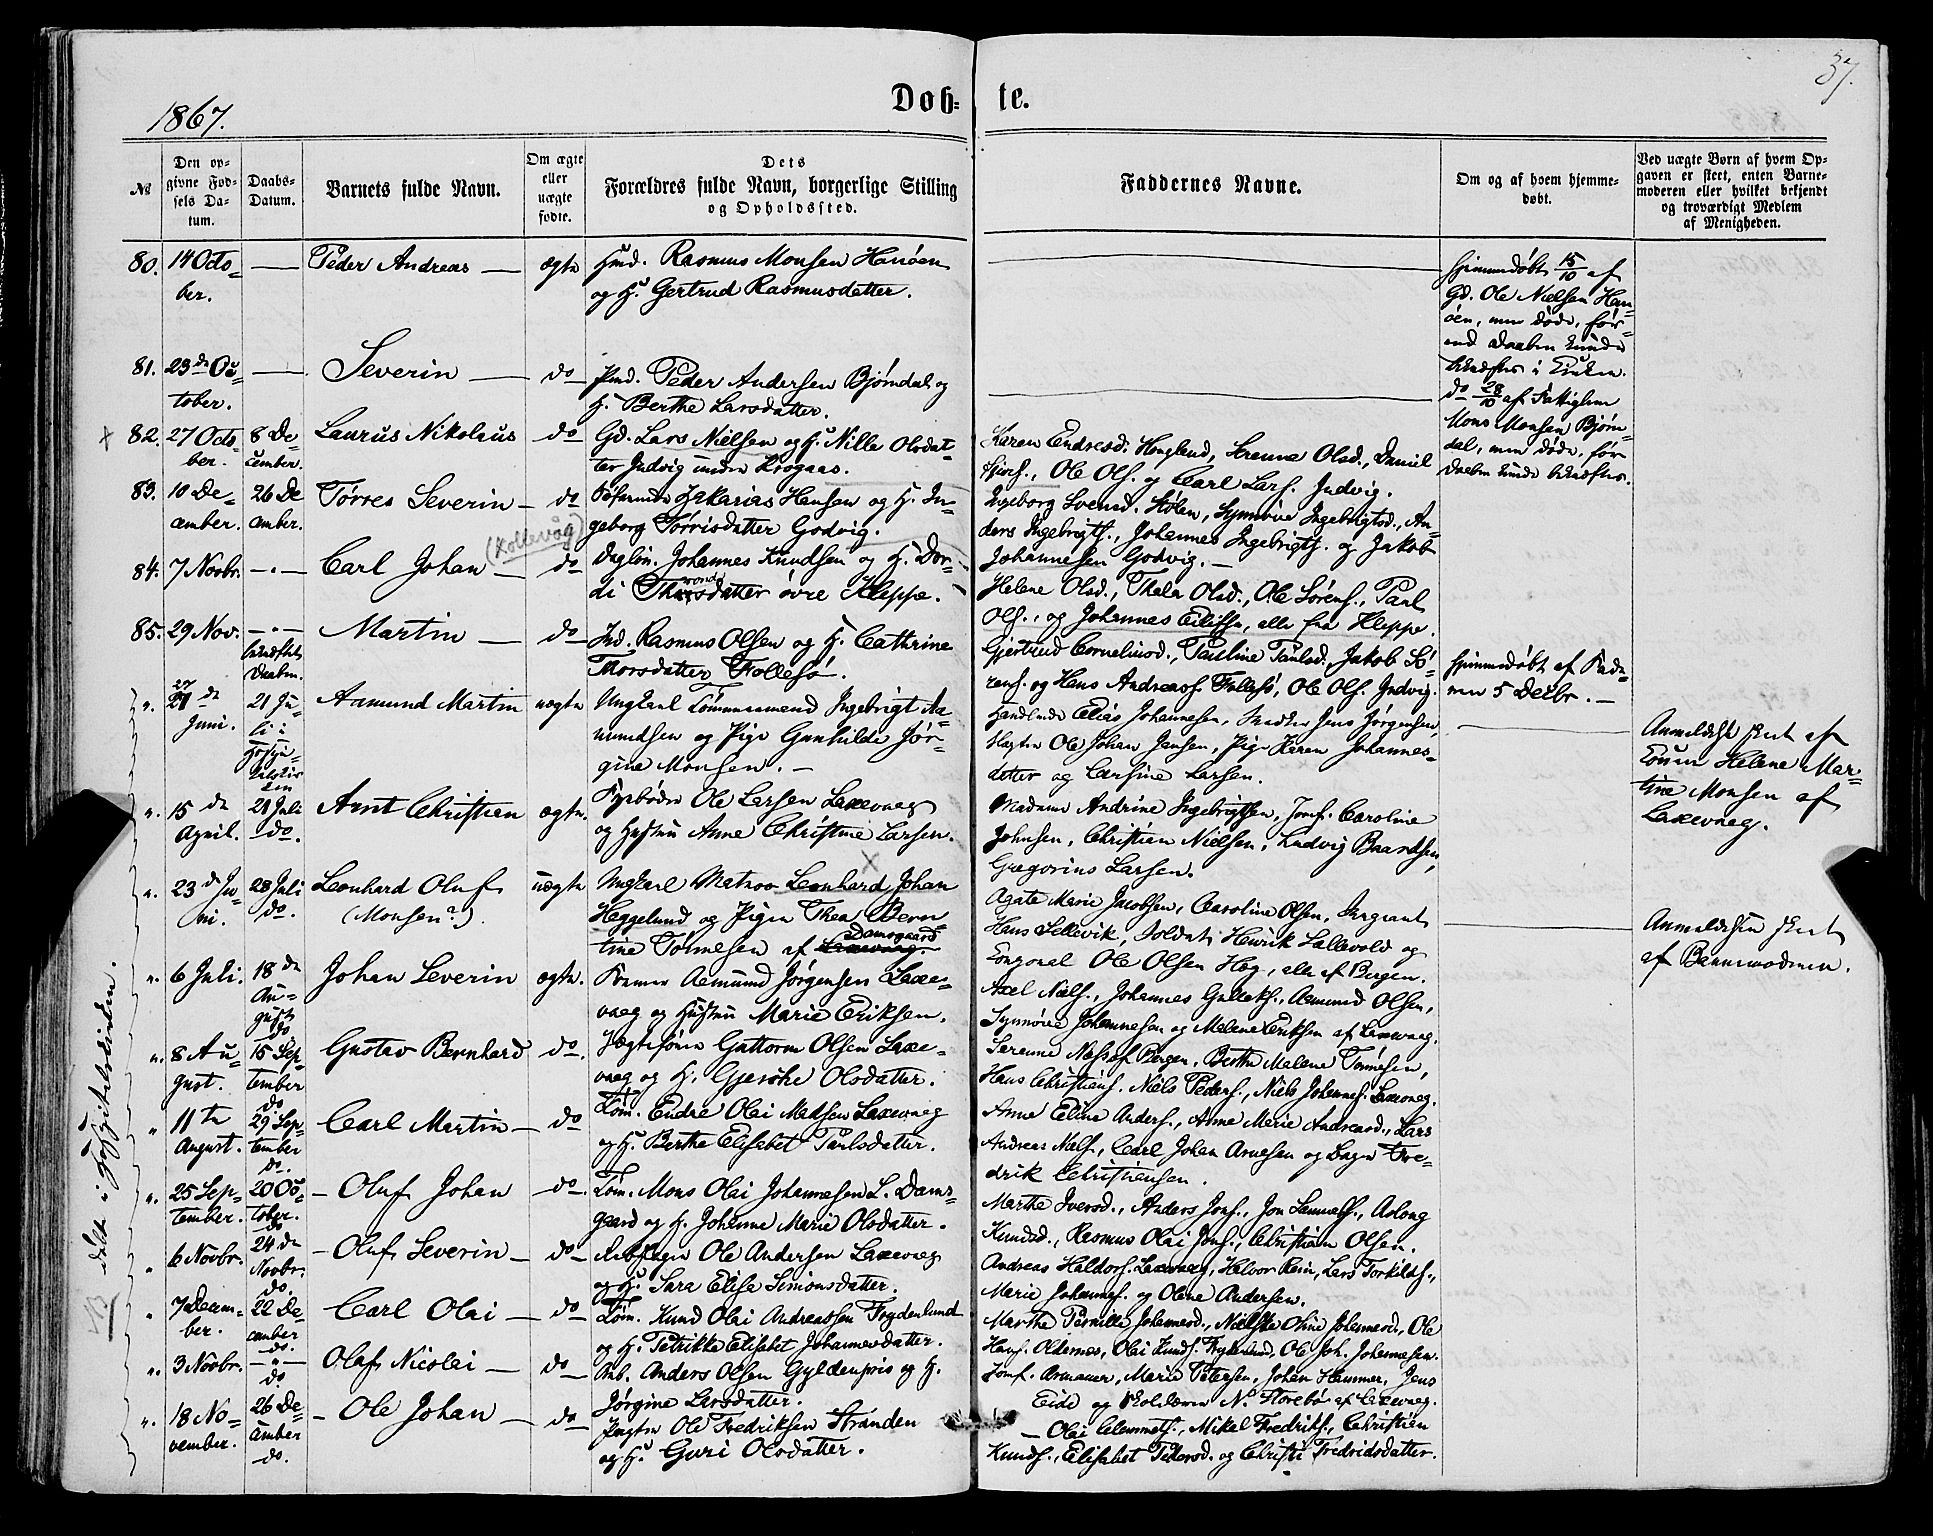 37.
1867.
Dob- te.
No
Den op-
givne Fød-
sels Da-
tum.
Daabs-
Datum.
Barnets fulde Navn.
Om ægte
eller
uægte
fødte.
Dets
Forældres fulde Navn, borgerlige Stilling
og Opholdssted.
Faddernes Navne.
Om og af hvem hjemme-
døbt.
Ved uægte Børn af hvem Op-
gaven er skeet, enten Barne-
moderen eller hvilket bekjendt
og troværdigt Medlem
af Menigheden.
80. 14 Octo-
ber.
Peder Andreas
ægte
Hmd. Rasmus Monsen Hanøen
og H. Gertrud Rasmusdatter.
hjemmedøbt 15/10 af
Gd. Ole Nielsen Han-
øen, men døde, før-
end Daaben kunde
bekræftes i Kirken.
81. 23de Oc-
tober.
Severin
do
Pmd. Peder Andersen Bjørndal og
H. Berthe Larsdatter.
do 28/10 af Fattiglem
Mons Monsen Bjørn-
dal, men døde, før
Daaben kunde bekræftes.
82. 27 Octo-
ber.
8 De-
cember.
Laurus Nikolaus
do
Gd. Lars Nielsen og H. Nille Olsdat-
ter Indvig under Krogaas.
Karen Endresd. Haugland, Serenna Olsd., Daniel
Ole Ols. og Carl Lars. Indvig.
83. 10 De-
cember.
26 De-
cember.
Tørres Severin
do
Zakarias Hansen og H. In-
geborg Tørrisdatter Godvig.
Ingeborg Svensd. Stølen, Synnøve Ingebrigtsd., An-
ders Ingebrigts., Johannes Ingebrigts. og Jakob
Johannesen Godvig.
(Kollevåg)
84. 7 Novbr.
Carl Johan
do
Dagløn. Johannes Knudsen og H. Dor-
di datter øvre Kleppe.
Helene Olsd., Thala Olsd., Ole Sørens., Paul
Ols., og Johannes Eilifsn, alle fra Kleppe.
85. 29 Nov.
bekræftet
Daaben.
Martin
do
Ind. Rasmus Olsen og H. Cathrine
Thorsdatter Follesø.
Gjertrud Corneliusd., Pauline Paulsd., Jakob Sø-
rens. og Hans Andreas. Follesø, Ole Ols. Indvig.
hjemmedøbt af Fade-
ren 5 Decbr.
27de
Juni.
21 Ju-
li i
Aamund Martin
uægte
Ungkarl Tømmermand Ingebrigt Aa-
mundsen og Pige Gunhilde Jør-
gine Monsen.
Handlende Elias Johannesen, Snedker Jens Jørgensen,
Ole Johan Jensen, Pige Karen Johannes-
datter og Larsine Larsen.
Anmeldelse skeet af
Konen Helene Mar-
tine Monsen af
Laxevaag.
15de
April.
21 Juli
do.
Arnt Christian
ægte.
Ole Larsen Laxevaag
og Hustru Anne Christine Larsen.
Madame Andrine Ingebrigtsen, Jomf. Caroline
Johnsen, Christian Nielsen, Ludvig Baardsen,
Gregorius Larsen.
23de Ju-
ni.
28 Juli
do.
Leonhard Oluf
(Monsen?)
uægte
Ungkarl Matros Leonhard Johan
Heggelund og Pigen Thea Bern-
tine Tønnesen af Laxevaag. Damsgaard
Agate Marie Jacobsen, Caroline Olsen, Sergeant
Hans Sellevik, Soldat Henrik Sallevold og
Korporal Ole Olsen Hag, alle af Bergen.
Anmeldelsen skeet
af Barnemoderen.
6 Juli.
18de
Au-
gust
do
Johan Severin
ægte.
Aamund Jørgensen Laxe-
vaag og Hustru Marie Eriksen.
Axel Niels., Johannes Gulleks., Aamund Olsen,
Synnøve Johannesen og Malene Eriksen af Laxevaag.
8 Au-
gust.
15 Sep-
tember
do
Gustav Bernhard
do.
Guttorm Olsen Laxe-
vaag og H. Gjerthe Olsdatter.
Serenna Næss af Bergen, Berthe Malene Tønnesen,
Hans Christians. Niels Peders., Niels Johannes. Laxevaag.
11te
August.
29 Sep-
tember
do.
Carl Martin
do
Tøm. Endre Olai Madsen Laxevaag
og H. Berthe Elisabet Paulsdatter.
Anne Elina Anders., Anne Marie Andreasd., Lars
Andreas Niels., Carl Johan Arnesen og Bager Fre-
drik Christiansen.
25 Sep-
tember.
20 Oc-
tober.
do
Oluf Johan
do.
Tøm. Mons Olai Johannesen L. Dams-
gaard og H. Johanne Marie Olsdatter.
Marthe Iversd., Anders Jons., Jon Samuels., Aslaug
Knudsd., Rasmus Olai Jons., Christian Olsen.
6 Novbr.
24de
Novbr.
do.
Oluf Severin
do
Ole Andersen Laxevaag
og H. Sara Elise Simonsdatter.
Andreas Haldors. Laxevaag, Halvor Rein, Lars Torkilds.,
Marie Johannes. og Olene Andersen.
7 Decem-
ber.
22 De-
cember
do.
Carl Olai
do
Tøm. Knud Olai Andreassen Frydenlund
og H. Petrikke Elisabet Johannesdatter.
Marthe Pernille Johannesd., Nielske Oline Johannesd., Ole
Hans. Oldernes, Olai Knuds. Frydenlund, Ole Joh. Johannesen.
3 Novbr.
do
Olaf Nicolai
do
Arb. Anders Olsen Gyldenpris og H.
Jørgine Larsdatter.
Jomf. Armauer, Marie Petersen, Johan Hammer, Jens
Eide og Skolelærer N. Storebø af Laxevaag.
18 No-
vember.
26 De-
cember
do.
Ole Johan
do
Ole Fredriksen Stranden
og H. Guri Olsdatter.
Olai Clemmets., Mikal Fredriks., Christian
Knuds., Elisabet Pedersd. og Christi Fredriksdatter.
NB døbt i Hospitalskirken.